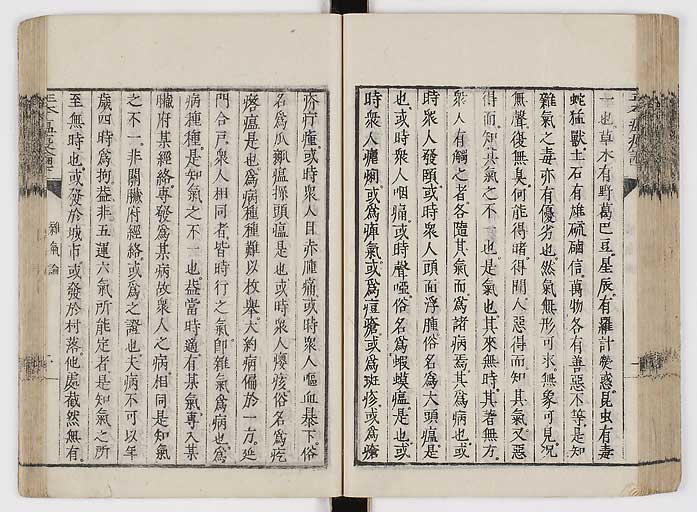 一也草木有野葛巴豆星辰有羅計熒惑昆虫有毒
蛇猛獸土石有雄硫硇信萬物各有善惡不等是知
雜氣之毒亦有優劣也然氣無形可求無象可見況
無聲復無臭何能得睹得聞人惡得而知其氣又惡
得而知其氣之不一也是氣也其來無時其著無方
衆人有觸之者各隨其氣而爲諸病焉其爲病也或
時衆人發頤或時衆人頭面浮腫俗名爲大頭瘟是
也或時衆人咽痛或時聲啞俗名爲蝦蟆瘟是也或
時衆人瘧痢或爲痺氣或爲痘瘡或爲斑疹或爲瘡
疥疔瘇或時衆人目赤腫痛或時衆人嘔血暴下俗
名爲瓜瓤瘟探頭瘟是也或時衆人癭痎俗名爲疙
瘩瘟是也爲病種種難以枚舉大約病偏於一方延
門合戶衆人相同者皆時行之氣卽雜氣爲病也爲
病種種是知氣之不一也盖當時適有某氣專入某
臟府某經絡專發爲某病故衆人之病相同是知氣
之不一非關臟府經絡或爲之證也夫病不可以年
歲四時爲拘盖非五運六氣所能定者是知氣之所
至無時也或發於城市或發於村落他處截然無有
雜氣論